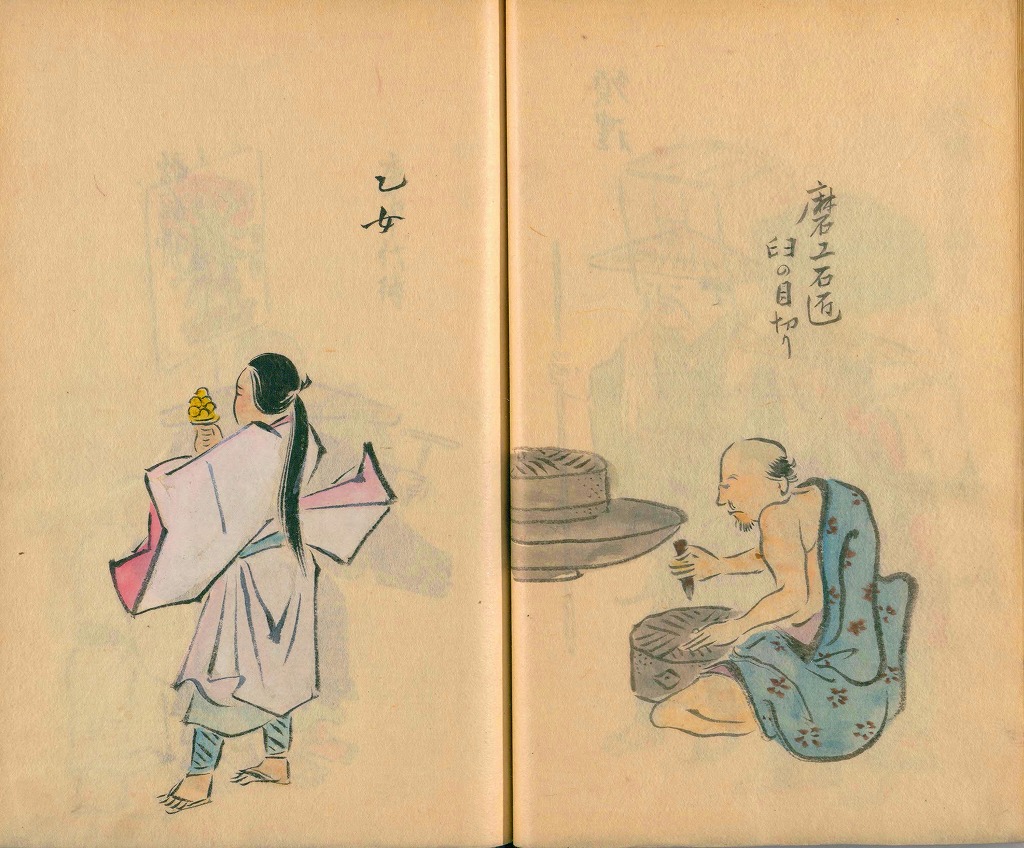 磨工石匠
臼の目切り
乙女